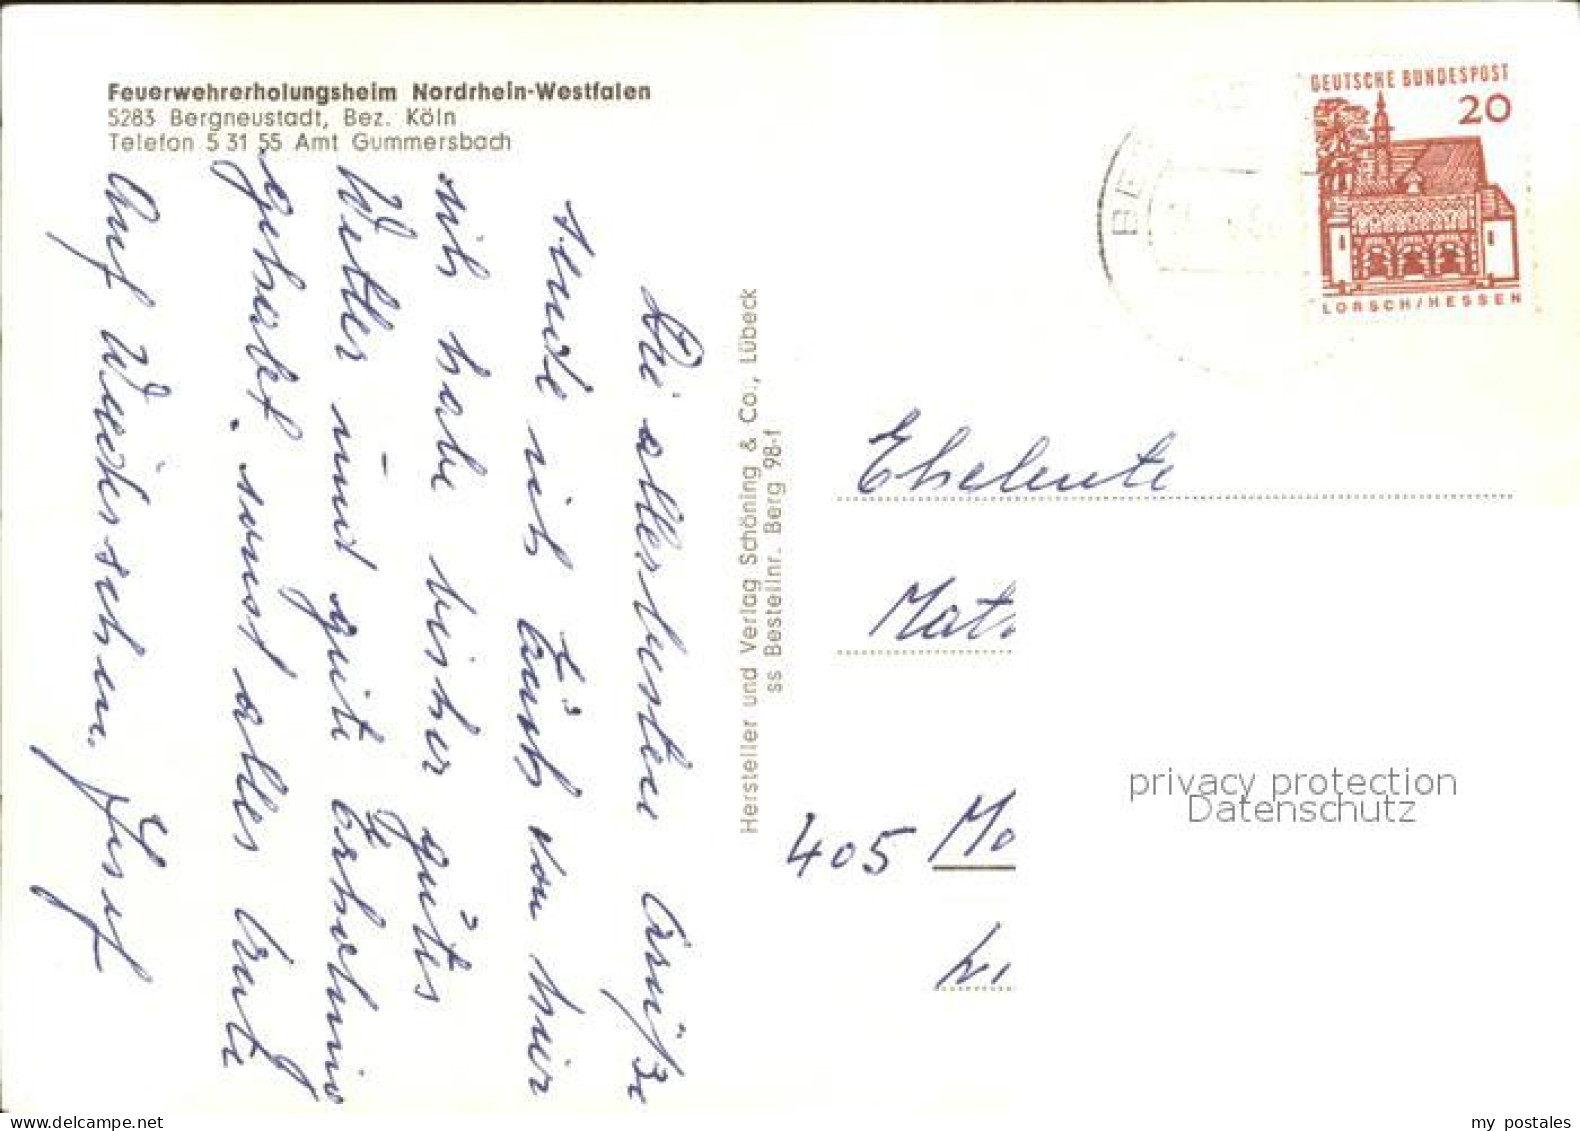 Feuerwehrerholungsheim Nordrhein-Westfalen
5283 Bergneustadt, Bez. Köln
Telefon 5 31 55 Amt Gummersbach
DEUTSCHE BUNDESPOST
20
LORSCH/HESSEN
BE
Die allerbesten Grüße
sende ich Euch von hier
ich habe bisher gutes
Wetter und gute Erholung
gehabt. sonst alles Gute
Auf Wiedersehen. Josef
Hersteller und Verlag Schöning & Co., Lübeck
ss Bestellnr. Berg 98-f
Eheleute
Math
405 Mo
privacy protection
Datenschutz
my postales